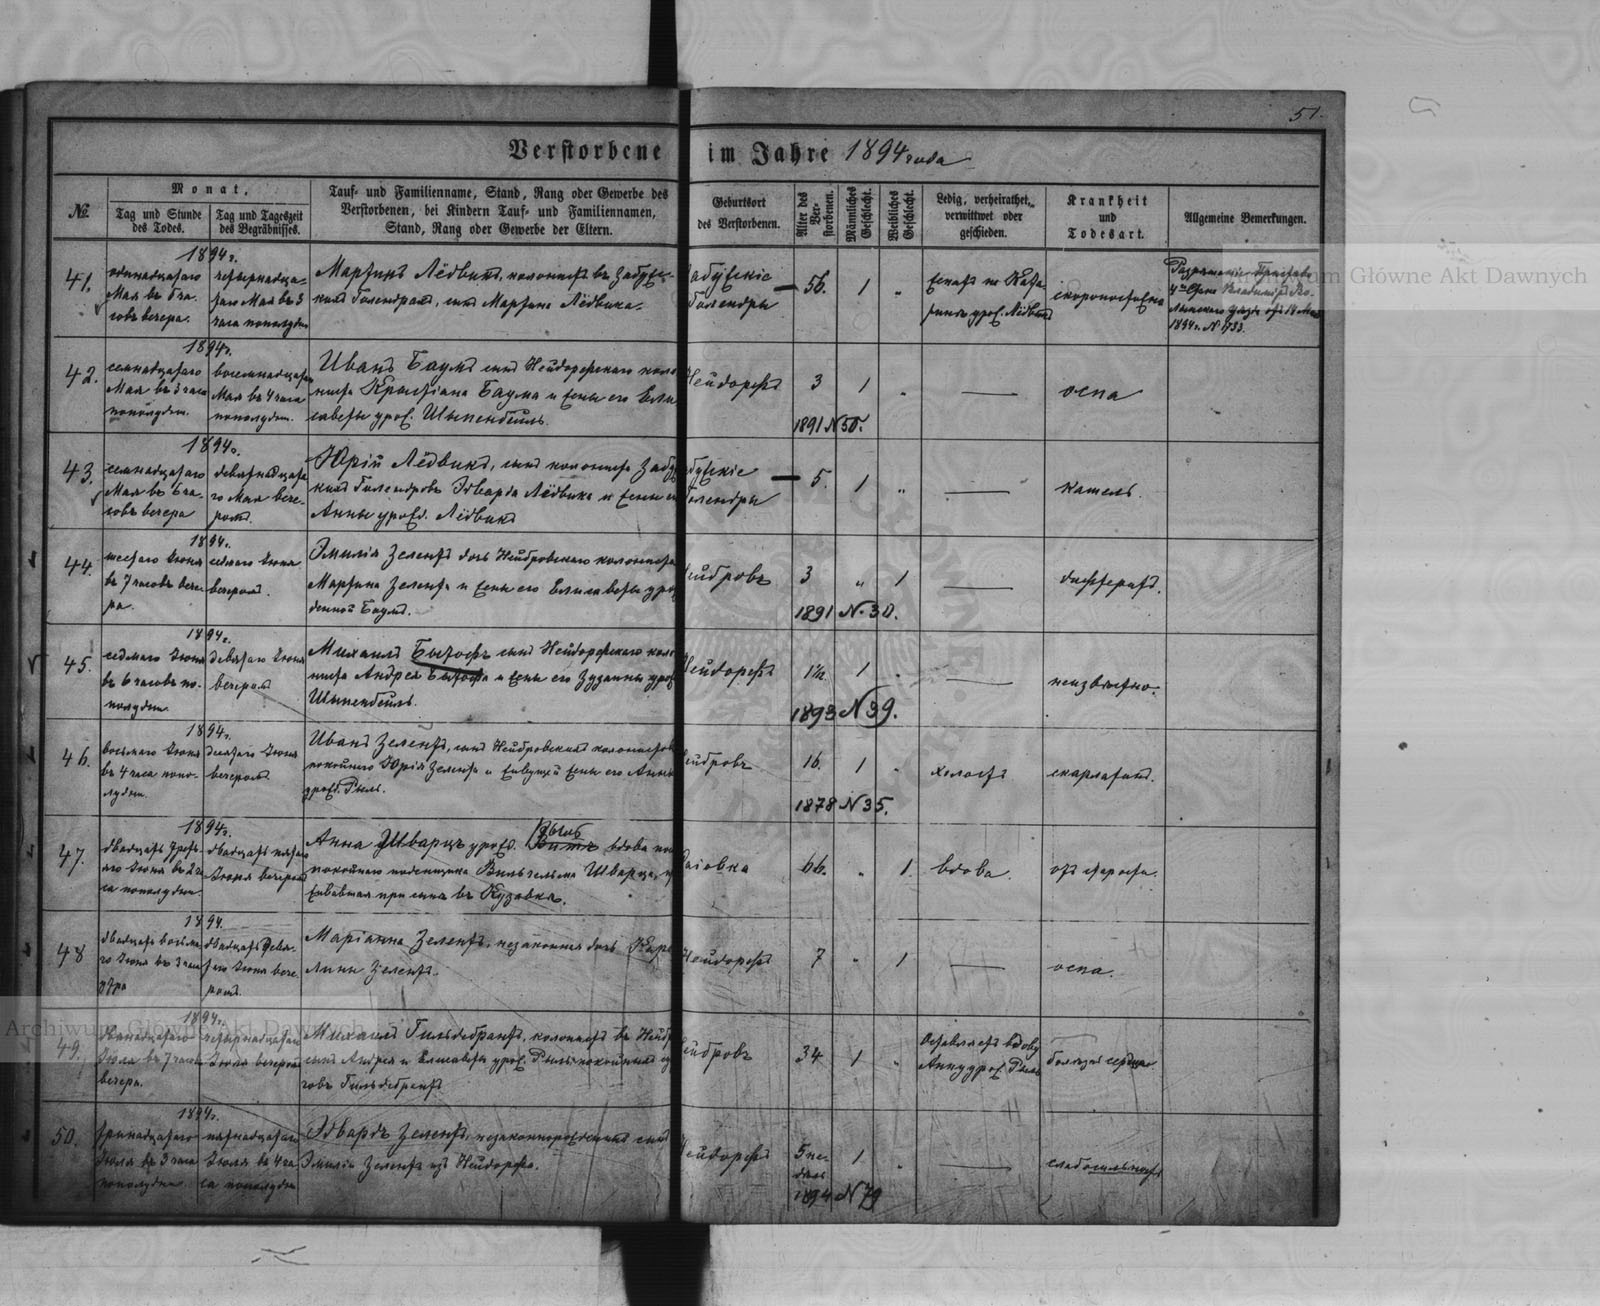 51.
Verstorbene im Jahre 1894 года
№
Monat.
Tag und Stunde des Todes.
Tag und Tageszeit des Begräbnisses.
Tauf- und Familienname, Stand, Rang oder Gewerbe des
Verstorbenen, bei Kindern Tauf- und Familiennamen,
Stand, Rang oder Gewerbe der Eltern.
Geburtsort
des Verstorbenen.
Alter des Ver-
storbenen.
Männliches Geschlecht.
Weibliches Geschlecht.
Ledig, verheirathet,
verwittwet oder
geschieden.
Krankheit
und
Todesart.
Allgemeine Bemerkungen.
1894г.
41.
одинадцатаго
Мая въ 6 ча-
совъ вечера.
четырнадца-
таго Мая въ 3
часа пополудни
Мартинъ Лёдвихъ, колонистъ въ Забужс-
кихъ Голендрахъ, сынъ Мартина Лёдвиха.
забужскіе
Голендры
56.
1
„
скоропостижно
1894г. N 733.
1894г.
42.
семнадцатаго
Мая въ 3 часа
пополудни.
восемнадцатаго
Мая въ 4 часа
пополудни.
Иванъ Баумъ сынъ Нейдорфскаго коло-
ниста Крыстіана Баума и жены его Ели
саветы урож. Шыпенбейль.
Нейдорфъ
3
1
„
оспа
1891 N 50.
1894г.
43.
семнадцатаго
Мая въ 6 ча-
совъ вечера
девятнадцата
го Мая вече-
ромъ.
Юрій Лёдвихъ, сынъ колониста Забуж
кихъ Голендровъ Эдварда Лёдвиха и жены его
Анны урожд. Лёдвихъ
бужскіе
Голендры
5.
1
„
кашель.
1894г.
44.
шестаго Іюня
въ 7 часовъ вече
ра.
седмаго Іюня
вечеромъ.
Эмилія Зелентъ дочь Нейбровскаго колониста
Мартина Зелента и жены его Елисаветы урож
денной Баумъ.
Нейбровъ
3
„
1
дифтеритъ.
1891 N. 30.
1894г.
45.
седмаго Іюня
въ 6 часовъ по-
полудни
девятаго Іюня
вечеромъ
Михаилъ Бытофъ сынъ Нейдорфскаго коло
ниста Андрея Бытофа и жены его Зузанны урож
Шыпенбейль.
Нейдорфъ
1½
1
„
неизвѣстно.
1893 N 39.
1894г.
46.
восьмаго Іюня
въ 4 часа попо-
лудни.
Іюня
вечеромъ.
Иванъ Зелентъ, сынъ Нейбровскихъ колонистовъ
покойнаго Юрія Зелента и живущей жены его Анны
урожд. Рыль.
Нейбровъ
16.
1
„
холостъ
скарлатит.
1878 N 35.
1894г.
47.
двадцать треть
яго Іюня въ 2 ча
са пополудни
двадцать пятаго
Іюня вечеромъ
Анна Шварцъ урожд. Витъ вдова по
покойнаго поденщика Вильгельма Шварца,
жившая при сынѣ въ Кузавкѣ.
66.
„
1.
вдова.
отъ старости.
1894.
48
двадцать восьма
го Іюня въ 3 часа
утра
двадцать девя-
таго Іюня вече-
ромъ.
Маріанна Зелентъ, незаконная дочь Каро
лины Зелентъ.
Нейдорфъ
7
„
1
оспа.
1894г.
49.
двѣнадцатаго
Іюля въ 7 часовъ
вечера.
четырнадцатаго
Іюля вечеромъ
Михаилъ Гильдебрантъ, колонистъ въ Нейбр
сынъ Андрея и Елисаветы урож. Рыль покойныхъ су
говъ Гильдебрантъ
Нейбровъ
34
1
„
Оставилъ вдову
Анну урож. Рыль
болѣзнь сердца
1894г.
50.
тринадцатаго
Іюля въ 3 часа
пополудни
пятнадцатаго
Іюля въ 4 ча
са пополудни
Эдвардъ Зелентъ, незаконнорожденный сынъ
Эмиліи Зелентъ изъ Нейдорфа.
Нейдорфъ
5 не-
дѣль
1
„
слабосильность
1894 N 79
Archiwum Główne Akt Dawnych
Archiwum Główne Akt Dawnych